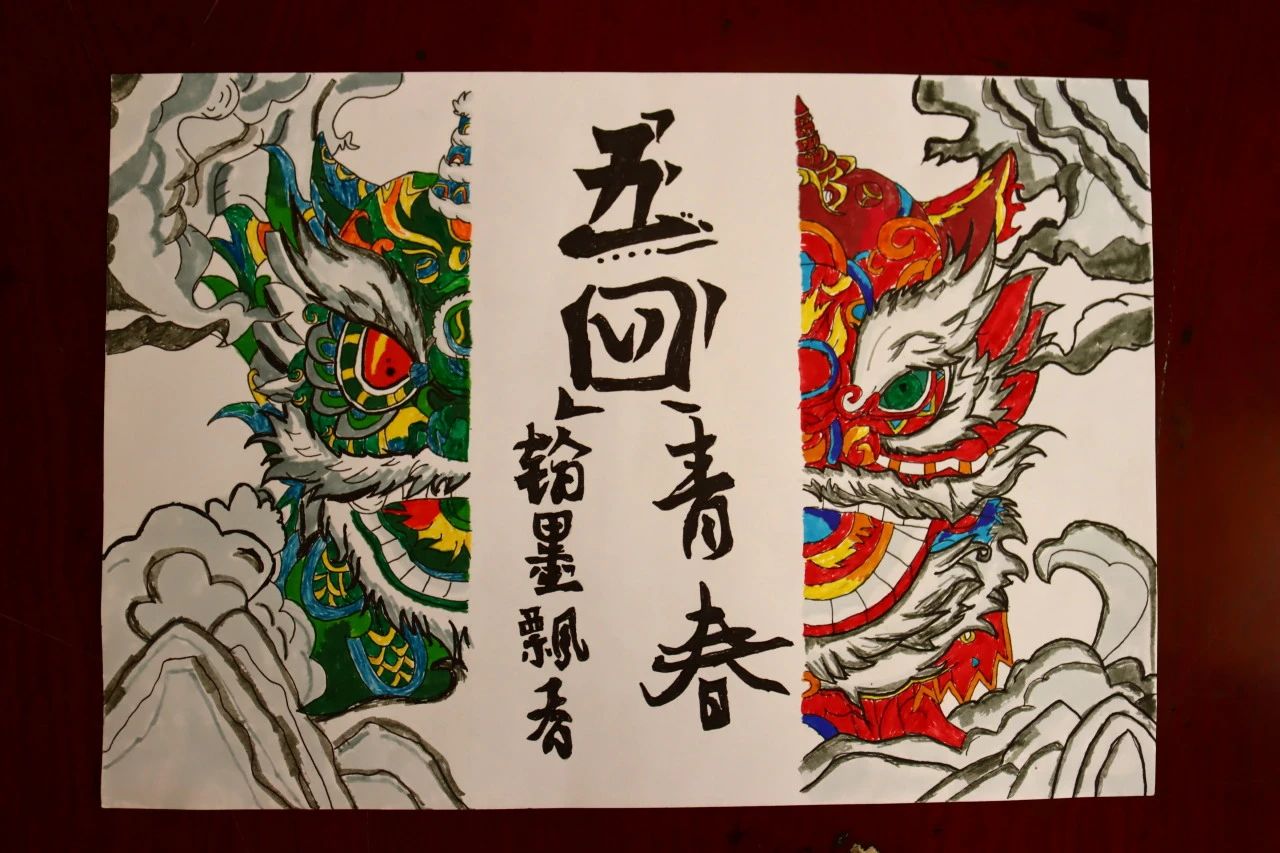 五四
青春
翰墨飘香